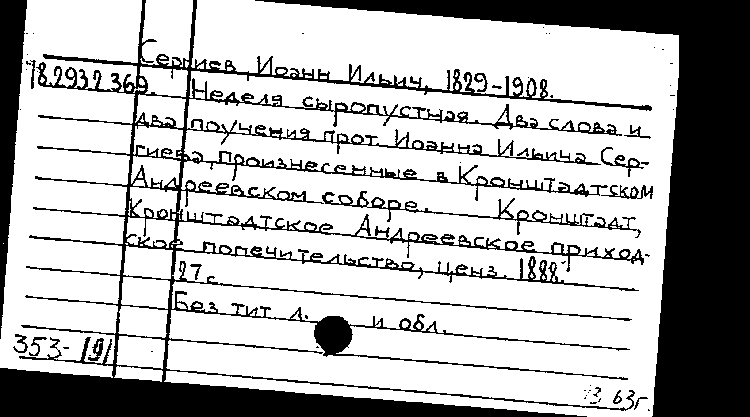 Сергиев, Иоанн Ильич, 1829-1908.
18.293.2.369. Неделя сыропустная. Два слова и
два поучения прот. Иоанна Ильича Сер-
гиева, произнесенные в Кронштадтском
Андреевском соборе. Кронштадт,
Кронштадтское Андреевское приход-
ское попечительство, ценз. 1888.
27 с.
Без тит. л. и обл.
353-191
63г.